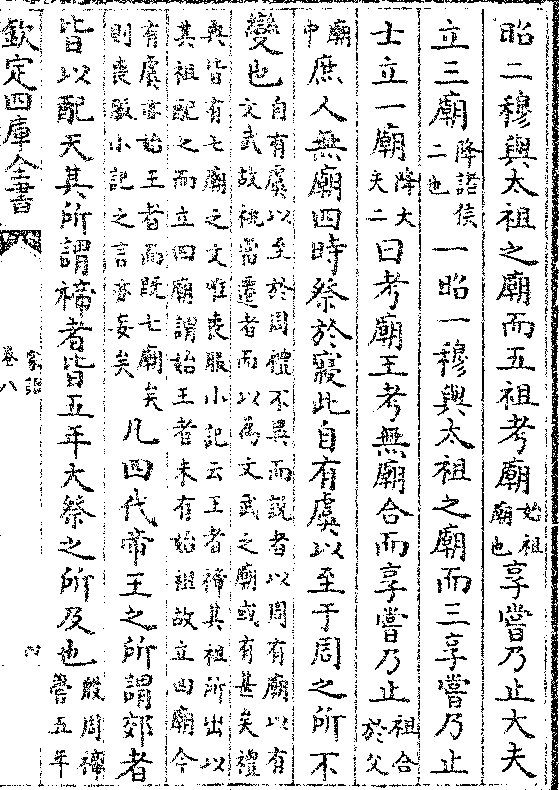 昭二穆與太祖之廟而五祖考廟始祖廟也享嘗乃止大夫
立三廟降諸侯二也一昭一穆與太祖之廟而三享嘗乃止
士立一廟降大夫二曰考廟王考無廟合而享嘗乃止祖合於父
廟中庶人無廟四時祭於寢此自有虞以至于周之所不
變也自有虞以至於周禮不異而說者以周有廟以有文武故祧當遷者而以爲文武之廟或有甚矣禮
典皆有七廟之文唯喪服小記云王者禘其祖所出以其祖配之而立四廟謂始王者未有始祖故立四廟今
有虞亦始王者而既七廟矣則喪服小記之言亦妄矣凡四代帝王之所謂郊者
皆以配天其所謂禘者皆五年大祭之所及也殷周禘嚳五年
欽定四庫全書
家語
卷八